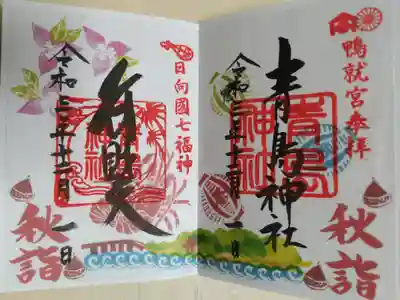 鴨就宮参拝
青島神社
青島神社
令和三年十二月一日
秋詣
日向國七福神
弁財天
令和三年十二月一日
秋詣